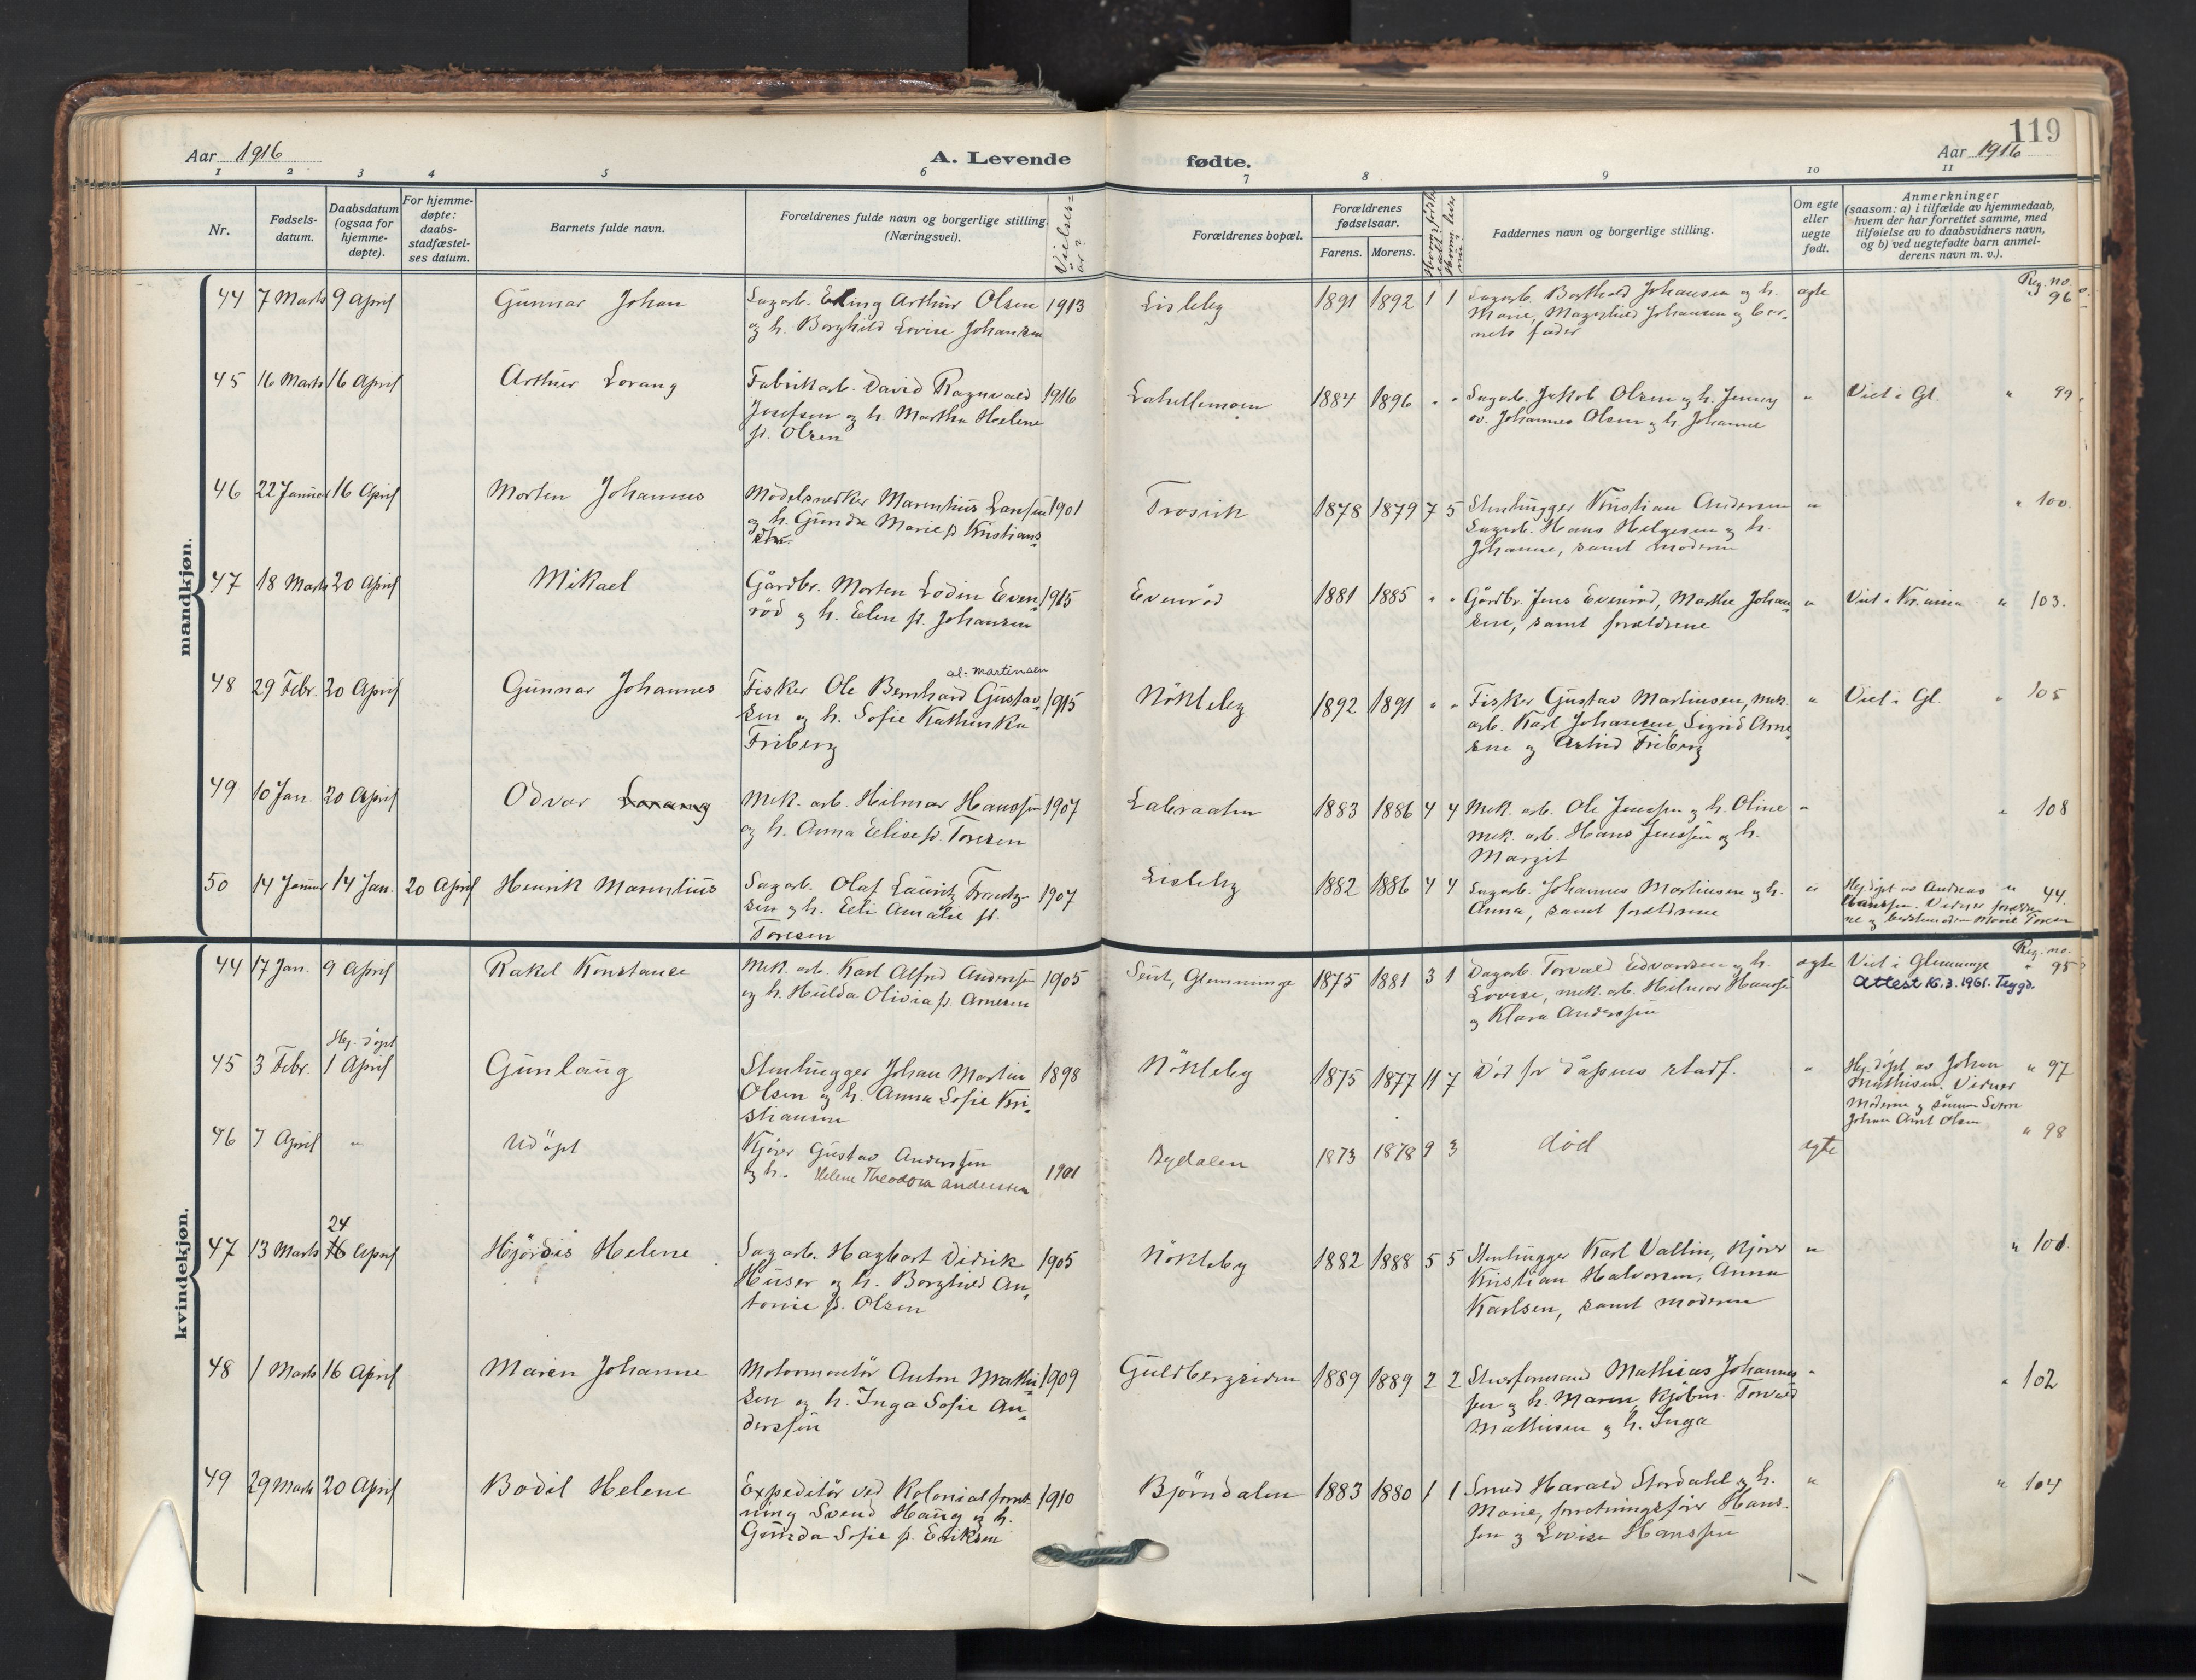 119
Aar 1916
A. Levende
fødte.
Aar 1916
1 2 3 4 5 6 7 8 9 10 11
Nr.
Fødselsdatum.
Daabsdatum (ogsaa for hjemmedøpte).
For hjemmedøpte: daabsstadfæstelses datum.
Barnets fulde navn.
Forældrenes fulde navn og borgerlige stilling. (Næringsvei).
Vielsesår?
Forældrenes bopæl.
Forældrenes fødselsaar.
Farens. Morens.
Faddernes navn og borgerlige stilling.
Om egte eller uegte født.
Anmerkninger
(saasom: a) i tilfælde av hjemmedaab,
hvem der har forrettet samme, med
tilføielse av to daabsvidners navn,
og b) ved uegtefødte barn anmelderens navn m. v.).
mandkjøn.
44 7 Marts 9 April Gunnar Johan
Sagarb. Erling Arthur Olsen 1913
og h. Borghild Lovise Johansen
Lisleby 1891 1892 1 1
Sagarb. Borthold Johansen og h.
Marie, Magnhild Johansen og bar-
nets fader
egte
Reg. no.
" 96
45 16 Marts 16 April Arthur Lorang
Fabrikarb. David Ragnvald 1916
Josefsen og h. Martha Helene
f. Olsen
Lahellemoen 1884 1896 " "
Sagarb. Jakob Olsen og h. Jenny
Johannes Olsen og h. Johanne
" Viet i Gl. " 99
46 22 Januar 16 April Morten Johannes
Modelsnekker Marentius Larsen 1901
og h. Gunda Marie f. Kristians-
Trosvik 1878 1879 7 5
Stenhugger Kristian Andersen
Sagarb. Hans Helgesen og h.
Johanne, samt moderen
" " 100.
47 18 Marts 20 April Mikael
Gårdbr. Morten Lodin Even- 1915
röd og h. Elen f. Johansen
Evenröd 1881 1885 " "
Gårdbr. Jens Evenröd, Marthe Johan-
sen, samt forældrene
" Viet i Kr.ania " 103.
48 29 Febr. 20 April Gunnar Johannes
al: Martinsen
Fisker Ole Bernhard Gustav- 1915
sen og h. Sofie Kathinka
Friberg
Nökleby 1892 1891 " "
Fisker Gustav Martinsen, mek.
arb. Karl Johansen, Sigrid Arne-
sen og Astrid Friberg
" Viet i Gl. " 105
49 10 Jan. 20 April Odvar Lorang
Mek. arb. Hilmar Hanssen 1907
og h. Anna Elise f. Toresen
Labraaten 1883 1886 4 4
Mek. arb. Ole Jenssen og h. Oline
mek. arb. Hans Jenssen og h.
Margit
" " 108
50 14 Januar 14 Jan. 20 April Henrik Marentius
Sagarb. Olaf Lauritz Frantz- 1907
sen og h. Elli Amalie f.
Toresen
Lisleby 1882 1886 4 4
Sagarb. Johannes Martinsen og h.
Anna, samt forældrene
" Hj. döpt av Andreas " 44.
Hanssen. Vidner forældre-
ne og bedstemoderen Marie Toresen
kvindekjøn.
44 17 Jan. 9 April Rakel Konstance
Mek. arb. Karl Alfred Anderssen 1905
og h. Hulda Olivia f. Arnesen
Seut, Glemminge 1875 1881 3 1
Dagarb. Torvald Edvardsen og h.
Lovise, mek. arb. Hilmar Hanssen
og Klara Anderssen
egte Viet i Glemminge
Reg. no.
" 95
Attest 16.3.1961. Trygd.
Hj. döpt
45 3 Febr. 1 April Gunlaug
Stenhugger Johan Martin 1898
Olsen og h. Anna Sofie Kri-
stiansen
Nökleby 1875 1877 11 7
Död för dåpens stadf.
" Hj. döpt av Johan " 97
Mathisen. Vidner
Moderen og sönnen Svenn
Johan Arnt Olsen
46 7 April " Udöpt
Kjörer Gustav Anderssen
og h. Helene Theodora Andersen 1901
Bydalen 1873 1878 9 3
död
egte " 98
24
47 13 Marts 16 April Hjördis Helene
Sagarb. Hagbart Didrik 1905
Huser og h. Borghild An-
tonie f. Olsen
Nökleby 1882 1888 5 5
Stenhugger Karl Vallin, Kjörer
Kristian Halvorsen, Anna
Karlsen, samt moderen
" " 101.
48 1 Marts 16 April Maren Johanne
Motormontör Anton Mathi- 1909
sen og h. Inga Sofie An-
derssen
Guldbergsiden 1889 1889 2 2
Mathias Johannes-
sen og h. Maren, Kjöbm. Torvald
Mathisen og h. Inga
" " 102
49 29 Marts 20 April Bodil Helene
Expeditör ved Kolonialforret- 1910
ning Svend Haug og h.
Gunda Sofie f. Eriksen
Björndalen 1883 1880 1 1
Smed Harald Stordahl og h.
Marie, forretningsförer Hans-
sen og Lovise Hanssen
" " 104